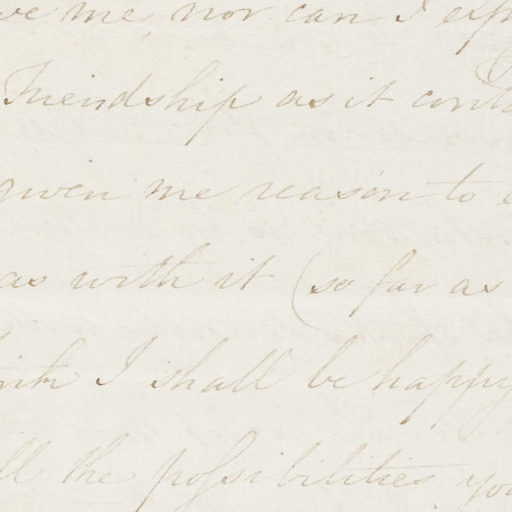 me, nor can I
Friendship as it
given me reason to
as with it (so far as
I shall be happy
the possibilities